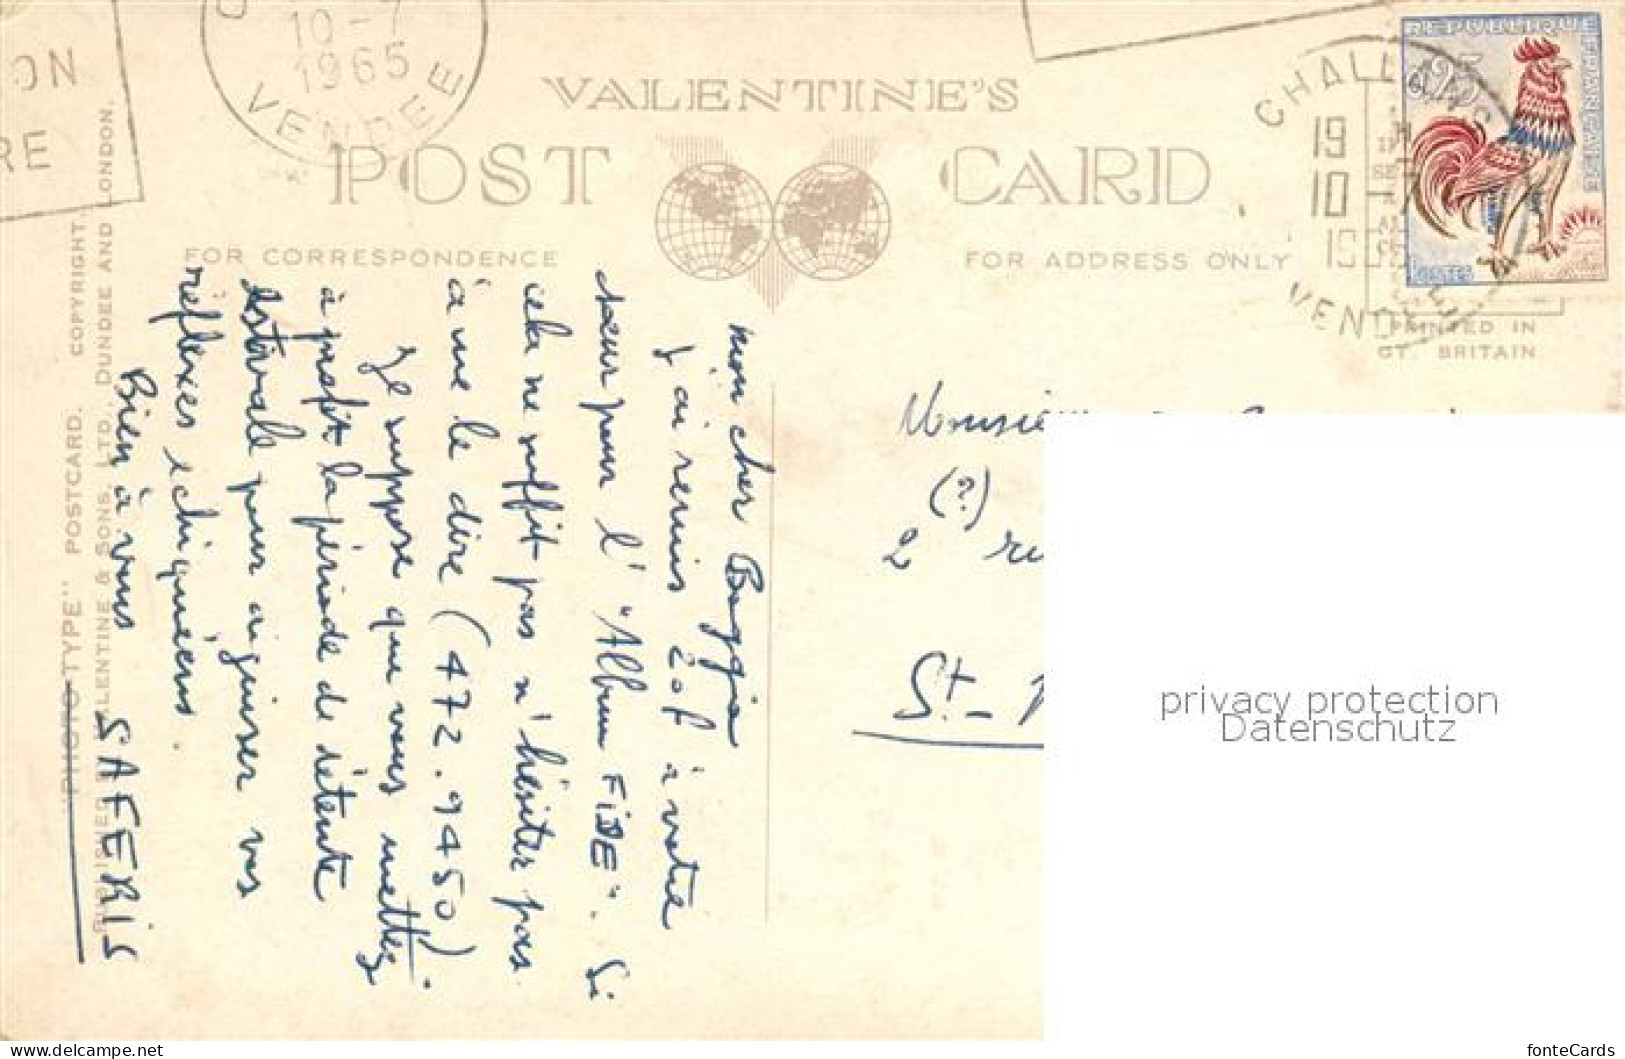 ON
RE
10 - 7
1965
VENDEE
VALENTINE'S
POST CARD
FOR CORRESPONDENCE
FOR ADDRESS ONLY
CHALLANS
19 H
10 - 7
VENDEE
REPUBLIQUE FRANÇAISE
0,25
POSTES
PRINTED IN
GT. BRITAIN
mon cher Boggio
J'ai remis 20f à votre
sœur pour l'"Album FIDE". Si
cela ne suffit pas n'hésiter pas
à me le dire (472.9450).
Je suppose que vous mettez
à profit la période de détente
estivale pour aiguiser vos
réflexes échiquéens.
Bien à vous
SAFERIS
"PHOTOTYPE" POSTCARD. COPYRIGHT.
PUBLISHED VALENTINE & SONS, LTD., DUNDEE AND LONDON.
(?)
2
St-
privacy protection
Datenschutz
fonteCards